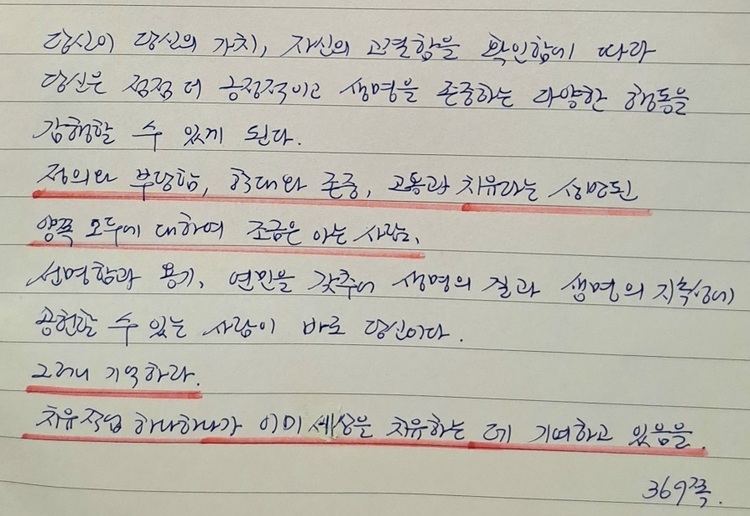 당신이 당신의 가치, 자신의 고결함을 확인함에 따라
당신은 점점 더 긍정적이고 생명을 존중하는 다양한 행동을
감행할 수 있게 된다.
정의와 부당함, 학대와 존중, 고통과 치유라는 상반된
양쪽 모두에 대하여 조금은 아는 사람,
선명함과 용기, 연민을 갖추어 생명의 질과 생명의 지속성에
공헌할 수 있는 사람이 바로 당신이다.
그러니 기억하라.
치유작업 하나하나가 이미 세상을 치유하는 데 기여하고 있음을.
369쪽.